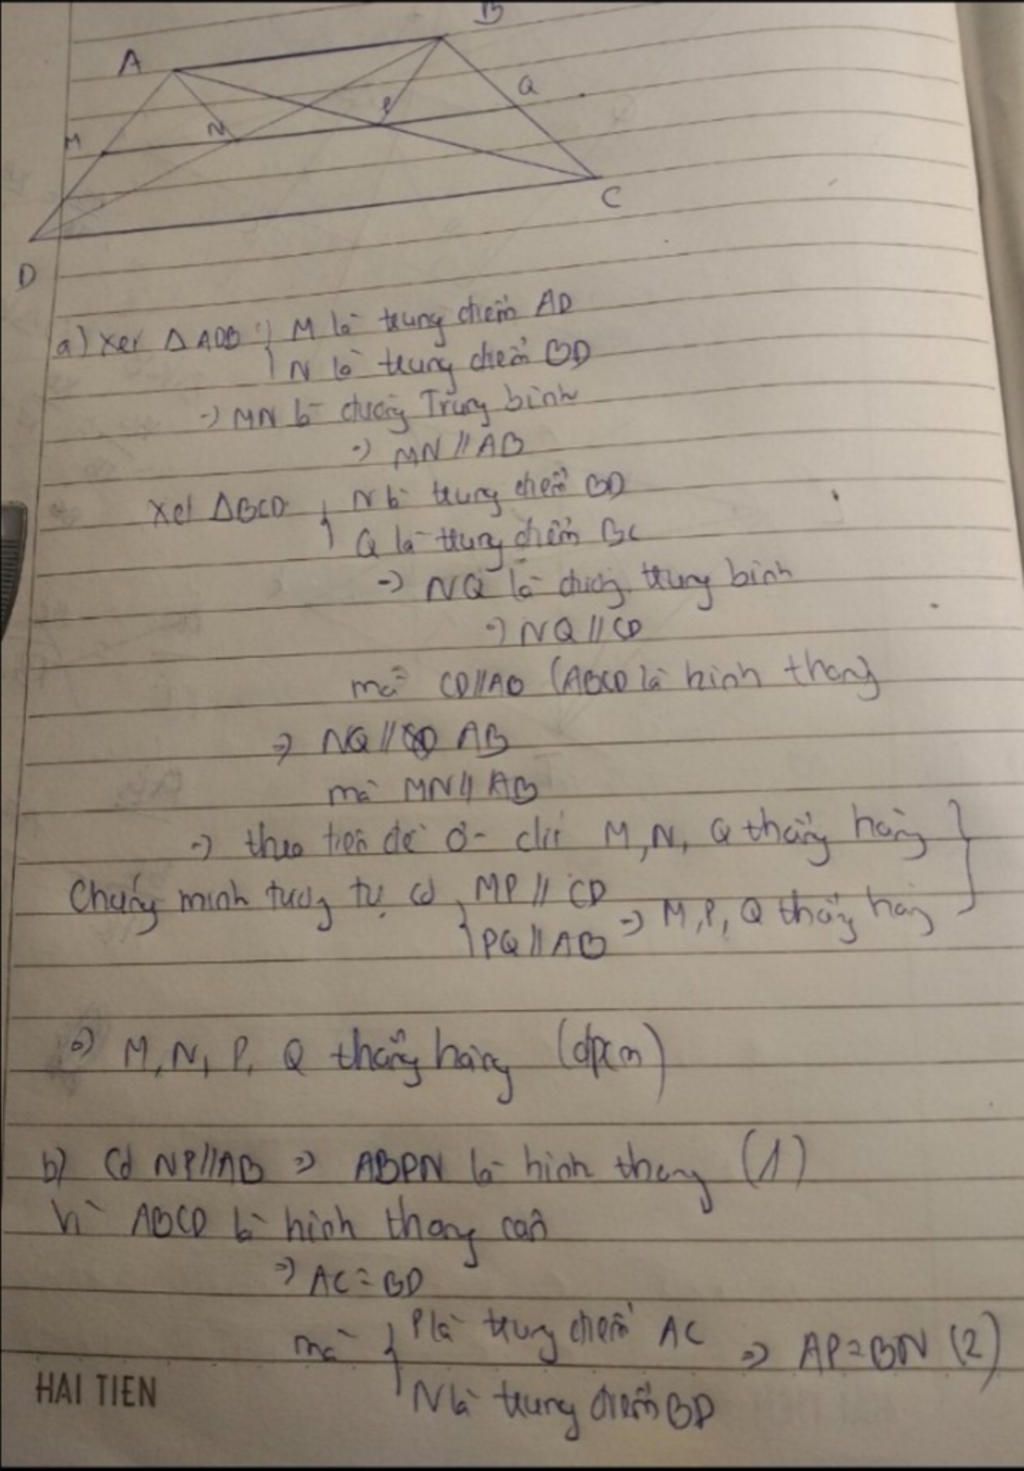 B
A
Q
P
N
M
C
D
a) Xét Δ ADB { M là trung điểm AD
N là trung điểm BD
=) MN là đường Trung bình
=) MN // AB
Xét ΔBCD { N là trung điểm BD
Q là trung điểm BC
=) NQ là đường trung bình
=) NQ // CD
mà CD//AB (ABCD là hình thang)
=) NQ // AB
mà MN // AB
=) theo tiên đề Ơ-clit M, N, Q thẳng hàng }
Chứng minh tương tự có { MP // CD
PQ // AB =) M, P, Q thẳng hàng
=) M, N, P, Q thẳng hàng (đpcm)
b) Có NP//AB =) ABPN là hình thang (1)
Vì ABCD là hình thang cân
=) AC = BD
mà { P là trung điểm AC =) AP = BN (2)
N là trung điểm BD
HAI TIEN